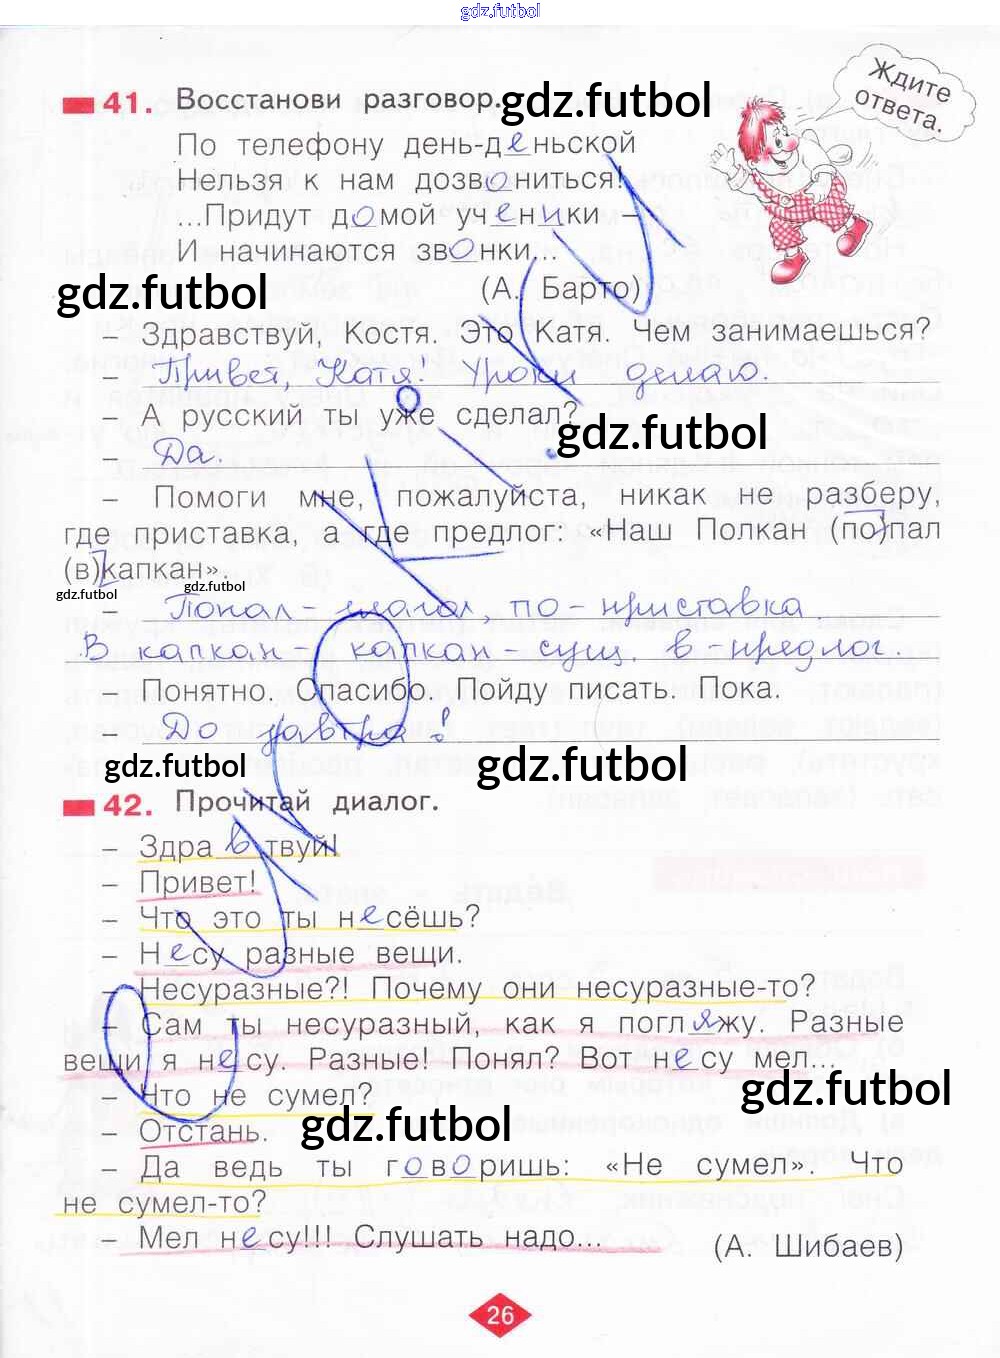 gdz.futbol
41. Восстанови разговор. gdz.futbol
Ждите ответа.
По телефону день-деньской
Нельзя к нам дозвониться!
...Придут домой ученики –
И начинаются звонки...
gdz.futbol
(А. Барто)
– Здравствуй, Костя. Это Катя. Чем занимаешься?
– Привет, Катя. Уроки делаю.
– А русский ты уже сделал?
gdz.futbol
– Да.
– Помоги мне, пожалуйста, никак не разберу,
где приставка, а где предлог: «Наш Полкан (по)пал
(в)капкан».
gdz.futbol gdz.futbol
– Попал – глагол, по – приставка
В капкан – капкан – сущ. в – предлог
Понятно. Спасибо. Пойду писать. Пока.
До завтра!
gdz.futbol gdz.futbol
42. Прочитай диалог.
– Здравствуй!
– Привет!
– Что это ты несёшь?
– Несу разные вещи.
– Несуразные?! Почему они несуразные-то?
– Сам ты несуразный, как я погляжу. Разные
вещи я несу. Разные! Понял? Вот несу мел...
gdz.futbol
– Что не сумел?
– Отстань.
gdz.futbol
– Да ведь ты говоришь: «Не сумел». Что
не сумел-то?
– Мел несу!!! Слушать надо...
(А. Шибаев)
26